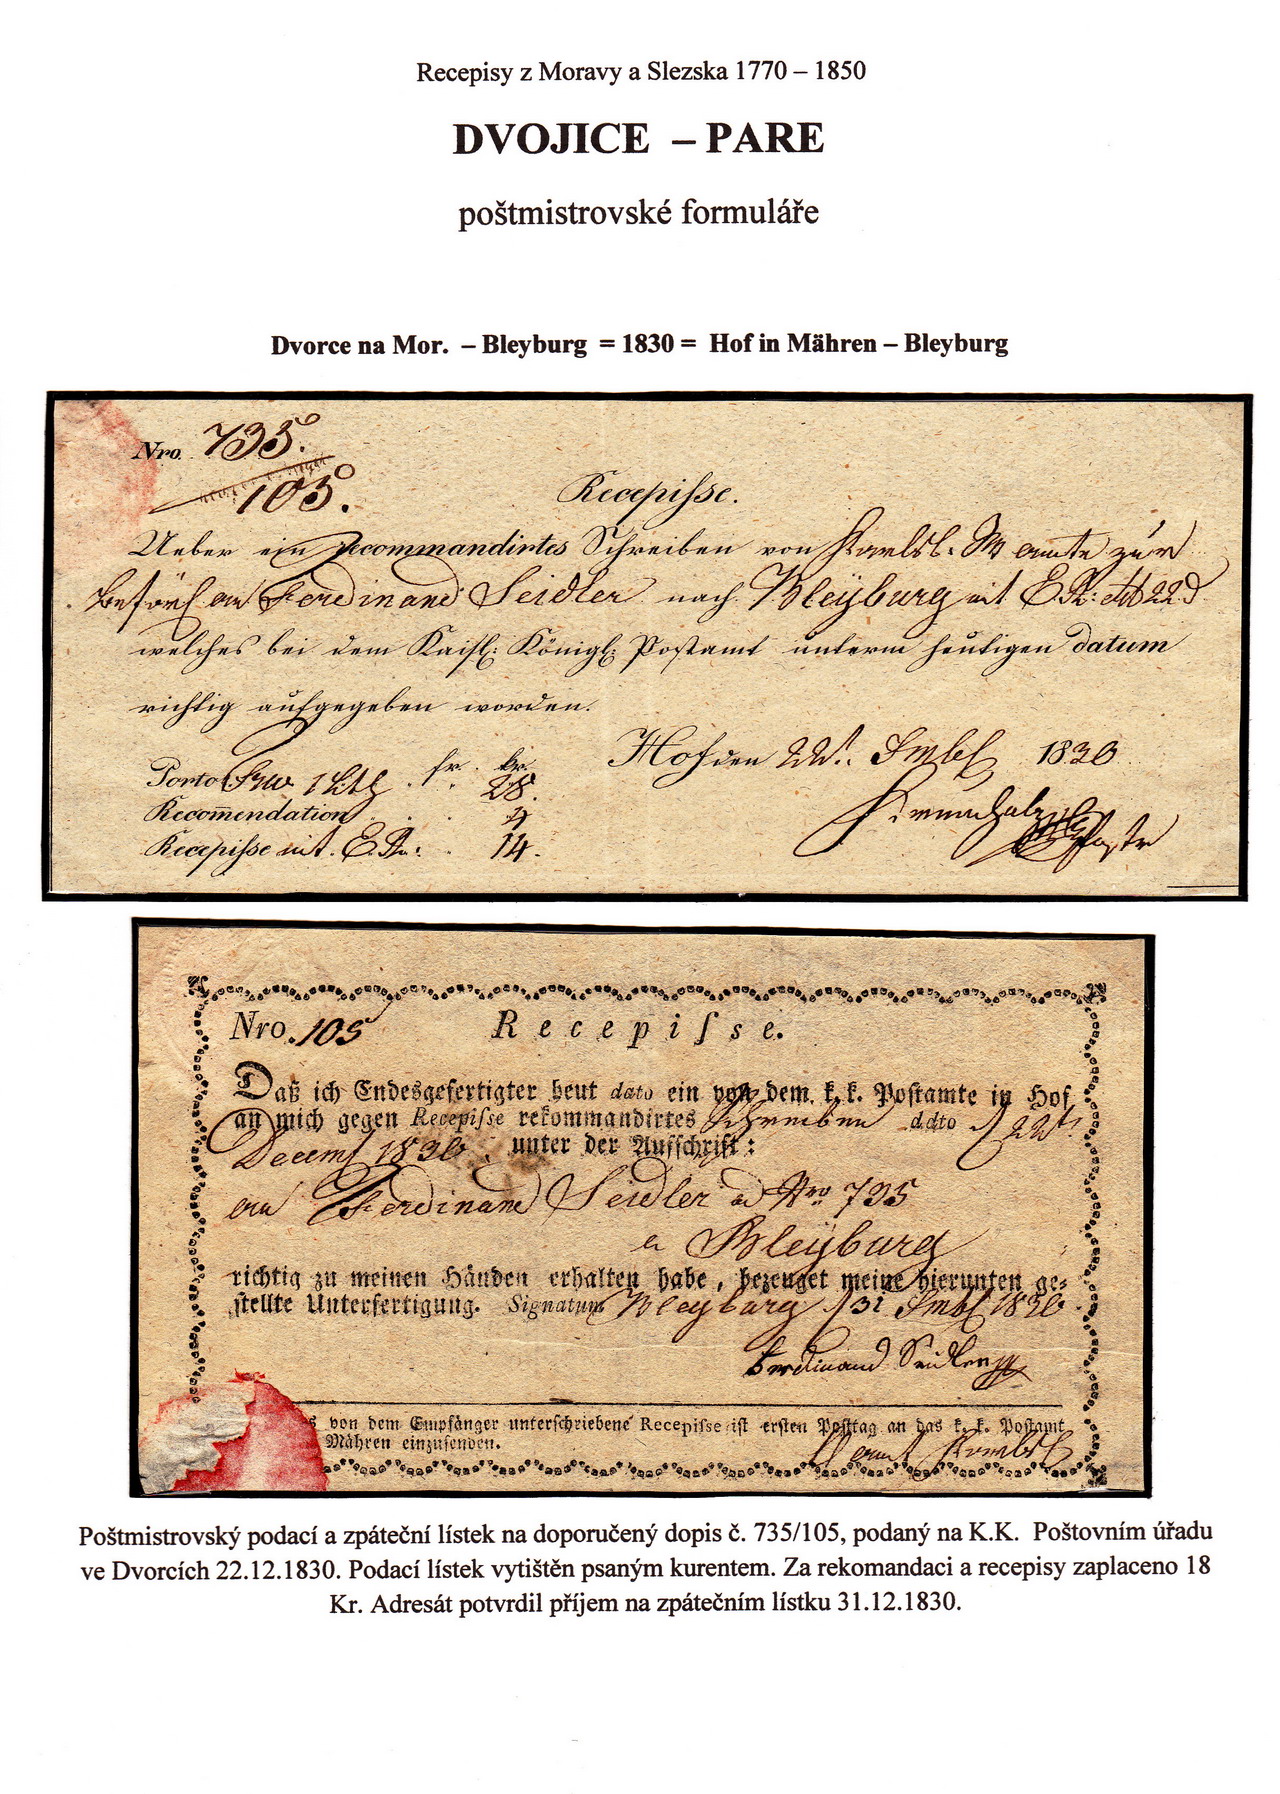 Recepisy z Moravy a Slezska 1770 – 1850
DVOJICE – PARE
poštmistrovské formuláře
Dvorce na Mor. – Bleyburg = 1830 = Hof in Mähren – Bleyburg
Nro. 735.
105.
Recepiſse.
Ueber ein recommandirtes Schreiben von
an Ferdinand Seidler nach Bleyburg mit
welches bei dem Kaisl: Königl: Postamt unterm heutigen datum
richtig aufgegeben worden.
Hof den 22t. 1830
fr. kr.
Porto 28.
Recom̄endation 4
Recepiſse mit. E. R.: 14.
Nro. 105 Recepiſse.
Daß ich Endesgefertigter heut dato ein von dem k. k. Postamte in Hof
an mich gegen Recepiſse rekommandirtes Schreiben ddto 22t.
Decemb 1830 unter der Aufschrift:
an Ferdinand Seidler Nro 735
Bleyburg
richtig zu meinen Händen erhalten habe, bezeuget meine hierunten ge-
stellte Unterfertigung. Signatum Bleyburg 31 1830
Ferdinand Seidler
von dem Empfänger unterschriebene Recepiſse ist ersten Posttag an das k. k. Postamt
Mähren einzusenden.
Poštmistrovský podací a zpáteční lístek na doporučený dopis č. 735/105, podaný na K.K. Poštovním úřadu
ve Dvorcích 22.12.1830. Podací lístek vytištěn psaným kurentem. Za rekomandaci a recepisy zaplaceno 18
Kr. Adresát potvrdil příjem na zpátečním lístku 31.12.1830.